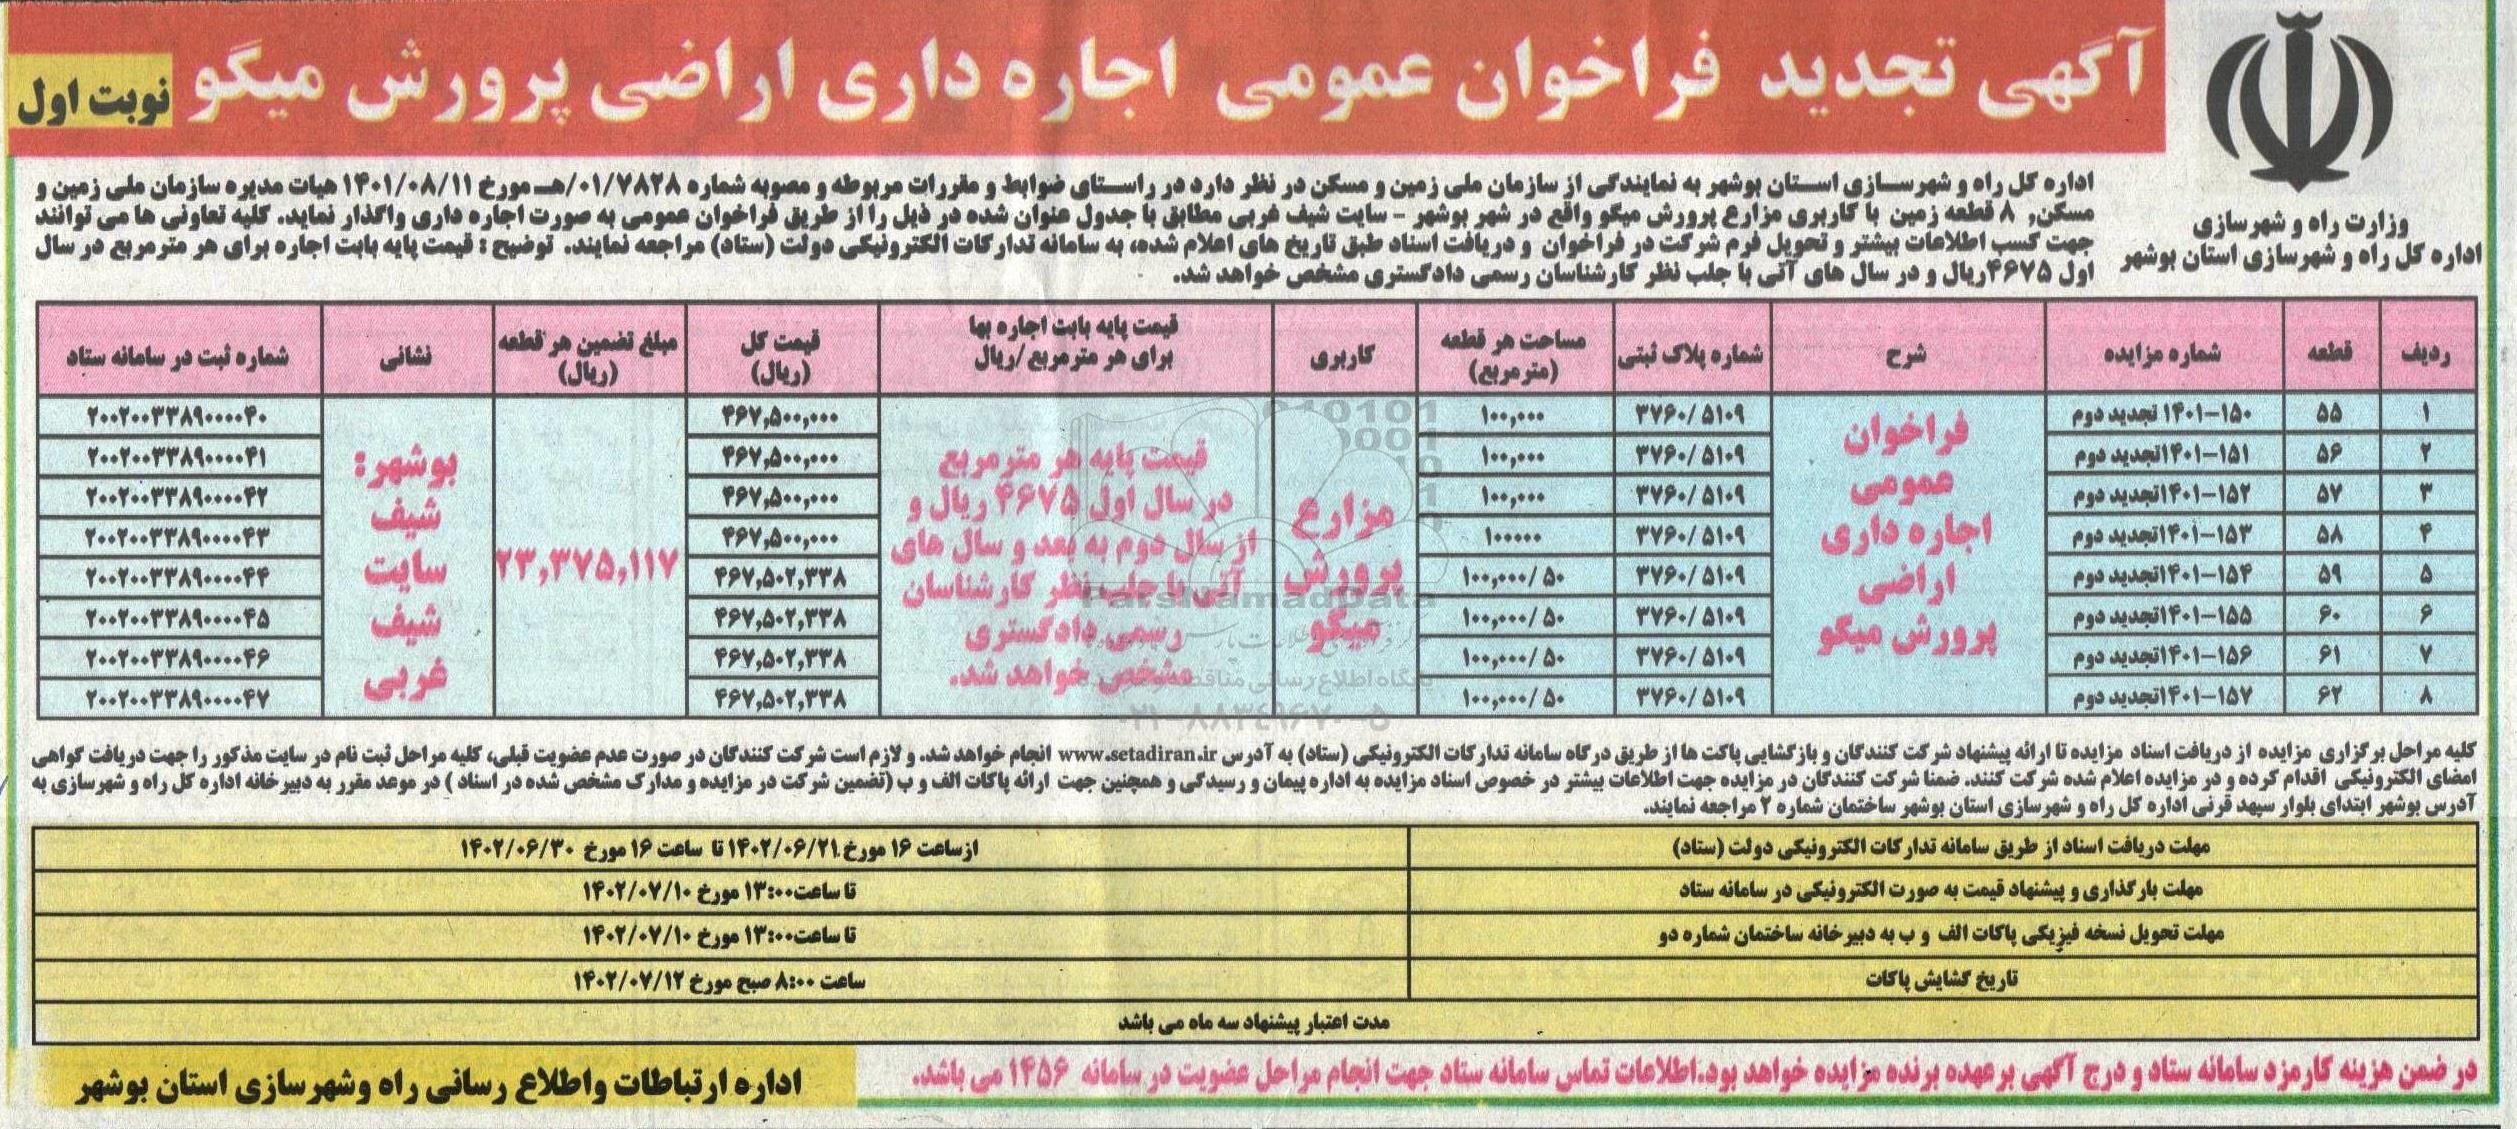 آگهی تجدید فراخوان عمومی اجاره داری اراضی پرورش میگو
نوبت اول
وزارت راه و شهرسازی
اداره کل راه و شهرسازی استان بوشهر
اداره کل راه و شهرسازی استان بوشهر به نمایندگی از سازمان ملی زمین و مسکن در نظر دارد در راستای ضوابط و مقررات مربوطه و مصوبه شماره ۰۱/۷۸۲۸/هـ مورخ ۱۴۰۱/۰۸/۱۱ هیات مدیره سازمان ملی زمین و
مسکن، ۸ قطعه زمین با کاربری مزارع پرورش میگو واقع در شهر بوشهر - سایت شیف غربی مطابق با جدول عنوان شده در ذیل را از طریق فراخوان عمومی به صورت اجاره داری واگذار نماید. کلیه تعاونی ها می توانند
جهت کسب اطلاعات بیشتر و تحویل فرم شرکت در فراخوان و دریافت اسناد طبق تاریخ های اعلام شده، به سامانه تدارکات الکترونیکی دولت (ستاد) مراجعه نمایند. توضیح : قیمت پایه بابت اجاره برای هر مترمربع در سال
اول ۴۶۷۵ریال و در سال های آتی با جلب نظر کارشناسان رسمی دادگستری مشخص خواهد شد.
ردیف قطعه شماره مزایده شرح شماره پلاک ثبتی مساحت هر قطعه (مترمربع) کاربری قیمت پایه بابت اجاره بها برای هر مترمربع/ریال قیمت کل (ریال) مبلغ تضمین هر قطعه (ریال) نشانی شماره ثبت در سامانه ستاد
۱ ۵۵ ۱۴۰۱-۱۵۰ تجدید دوم ۳۷۶۰/۵۱۰۹ ۱۰۰,۰۰۰ ۴۶۷,۵۰۰,۰۰۰ ۲۰۰۲۰۰۳۳۸۹۰۰۰۰۴۰
۲ ۵۶ ۱۴۰۱-۱۵۱تجدید دوم ۳۷۶۰/۵۱۰۹ ۱۰۰,۰۰۰ ۴۶۷,۵۰۰,۰۰۰ ۲۰۰۲۰۰۳۳۸۹۰۰۰۰۴۱
۳ ۵۷ ۱۴۰۱-۱۵۲تجدید دوم ۳۷۶۰/۵۱۰۹ ۱۰۰,۰۰۰ ۴۶۷,۵۰۰,۰۰۰ ۲۰۰۲۰۰۳۳۸۹۰۰۰۰۴۲
۴ ۵۸ ۱۴۰۱-۱۵۳تجدید دوم ۳۷۶۰/۵۱۰۹ ۱۰۰۰۰۰ ۴۶۷,۵۰۰,۰۰۰ ۲۰۰۲۰۰۳۳۸۹۰۰۰۰۴۳
۵ ۵۹ ۱۴۰۱-۱۵۴تجدید دوم ۳۷۶۰/۵۱۰۹ ۱۰۰,۰۰۰/۵۰ ۴۶۷,۵۰۲,۳۳۸ ۲۰۰۲۰۰۳۳۸۹۰۰۰۰۴۴
۶ ۶۰ ۱۴۰۱-۱۵۵تجدید دوم ۳۷۶۰/۵۱۰۹ ۱۰۰,۰۰۰/۵۰ ۴۶۷,۵۰۲,۳۳۸ ۲۰۰۲۰۰۳۳۸۹۰۰۰۰۴۵
۷ ۶۱ ۱۴۰۱-۱۵۶تجدید دوم ۳۷۶۰/۵۱۰۹ ۱۰۰,۰۰۰/۵۰ ۴۶۷,۵۰۲,۳۳۸ ۲۰۰۲۰۰۳۳۸۹۰۰۰۰۴۶
۸ ۶۲ ۱۴۰۱-۱۵۷تجدید دوم ۳۷۶۰/۵۱۰۹ ۱۰۰,۰۰۰/۵۰ ۴۶۷,۵۰۲,۳۳۸ ۲۰۰۲۰۰۳۳۸۹۰۰۰۰۴۷
فراخوان
عمومی
اجاره داری
اراضی
پرورش میگو
مزارع
پرورش
میگو
قیمت پایه هر مترمربع
در سال اول ۴۶۷۵ ریال و
از سال دوم به بعد و سال های
آتی با جلب نظر کارشناسان
رسمی دادگستری
مشخص خواهد شد.
۲۳,۳۷۵,۱۱۷
بوشهر:
شیف
سایت
شیف
غربی
ParsNamadData
پایگاه اطلاع رسانی مناقصه و مزایده
۰۲۱-۸۸۳۴۹۶۷۰-۵
کلیه مراحل برگزاری مزایده از دریافت اسناد مزایده تا ارائه پیشنهاد شرکت کنندگان و بازگشایی پاکت ها از طریق درگاه سامانه تدارکات الکترونیکی (ستاد) به آدرس www.setadiran.ir انجام خواهد شد. و لازم است شرکت کنندگان در صورت عدم عضویت قبلی، کلیه مراحل ثبت نام در سایت مذکور را جهت دریافت گواهی
امضای الکترونیکی اقدام کرده و در مزایده اعلام شده شرکت کنند. ضمنا شرکت کنندگان در مزایده جهت اطلاعات بیشتر در خصوص اسناد مزایده به اداره پیمان و رسیدگی و همچنین جهت ارائه پاکات الف و ب (تضمین شرکت در مزایده و مدارک مشخص شده در اسناد ) در موعد مقرر به دبیرخانه اداره کل راه و شهرسازی به
آدرس بوشهر ابتدای بلوار سپهد قرنی اداره کل راه و شهرسازی استان بوشهر ساختمان شماره ۲ مراجعه نمایند.
مهلت دریافت اسناد از طریق سامانه تدارکات الکترونیکی دولت (ستاد) ازساعت ۱۶ مورخ ۱۴۰۲/۰۶/۲۱ تا ساعت ۱۶ مورخ ۱۴۰۲/۰۶/۳۰
مهلت بارگذاری و پیشنهاد قیمت به صورت الکترونیکی در سامانه ستاد تا ساعت۱۳:۰۰ مورخ ۱۴۰۲/۰۷/۱۰
مهلت تحویل نسخه فیزیکی پاکات الف و ب به دبیرخانه ساختمان شماره دو تا ساعت۱۳:۰۰ مورخ ۱۴۰۲/۰۷/۱۰
تاریخ گشایش پاکات ساعت ۸:۰۰ صبح مورخ ۱۴۰۲/۰۷/۱۲
مدت اعتبار پیشنهاد سه ماه می باشد
در ضمن هزینه کارمزد سامانه ستاد و درج آگهی برعهده برنده مزایده خواهد بود.اطلاعات تماس سامانه ستاد جهت انجام مراحل عضویت در سامانه ۱۴۵۶ می باشد.
اداره ارتباطات واطلاع رسانی راه وشهرسازی استان بوشهر